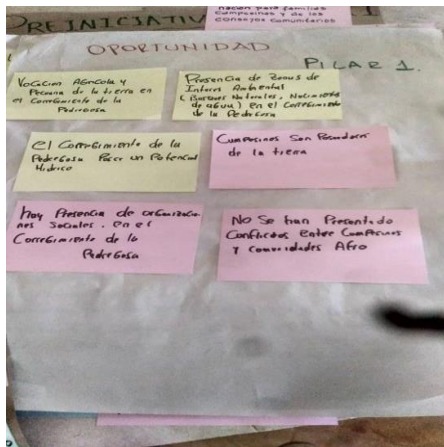 nación para familias
campesinas y de los
consejos comunitarios
PREINICIATIV
OPORTUNIDAD
PILAR 1.
Vocación Agricola y
Pecuaria de la tierra en
el Corregimiento de la
Pedregosa
Presencia de zonas de
Interes Ambiental
(Bosques Naturales, Nacimientos
de agua) en el Corregimiento
de la Pedregosa
El Corregimiento de la
Pedregosa Posee un Potencial
Hidrico
Campesinos Son Poseedores
de la tierra
hay Presencia de organizacio-
nes Sociales. en el
Corregimiento de la
Pedregosa
No Se han Presentado
Conflictos Entre Campesinos
y comunidades Afro